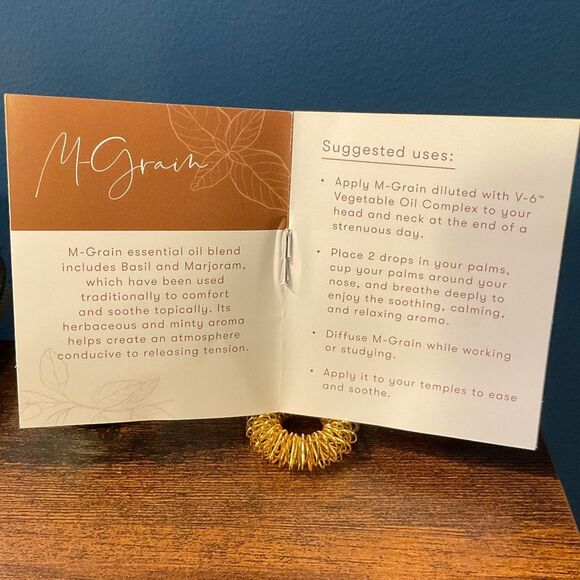 M-Grain
M-Grain essential oil blend
includes Basil and Marjoram,
which have been used
traditionally to comfort
and soothe topically. Its
herbaceous and minty aroma
helps create an atmosphere
conducive to releasing tension.
Suggested uses:
• Apply M-Grain diluted with V-6™
Vegetable Oil Complex to your
head and neck at the end of a
strenuous day.
• Place 2 drops in your palms,
cup your palms around your
nose, and breathe deeply to
enjoy the soothing, calming,
and relaxing aroma.
• Diffuse M-Grain while working
or studying.
• Apply it to your temples to ease
and soothe.